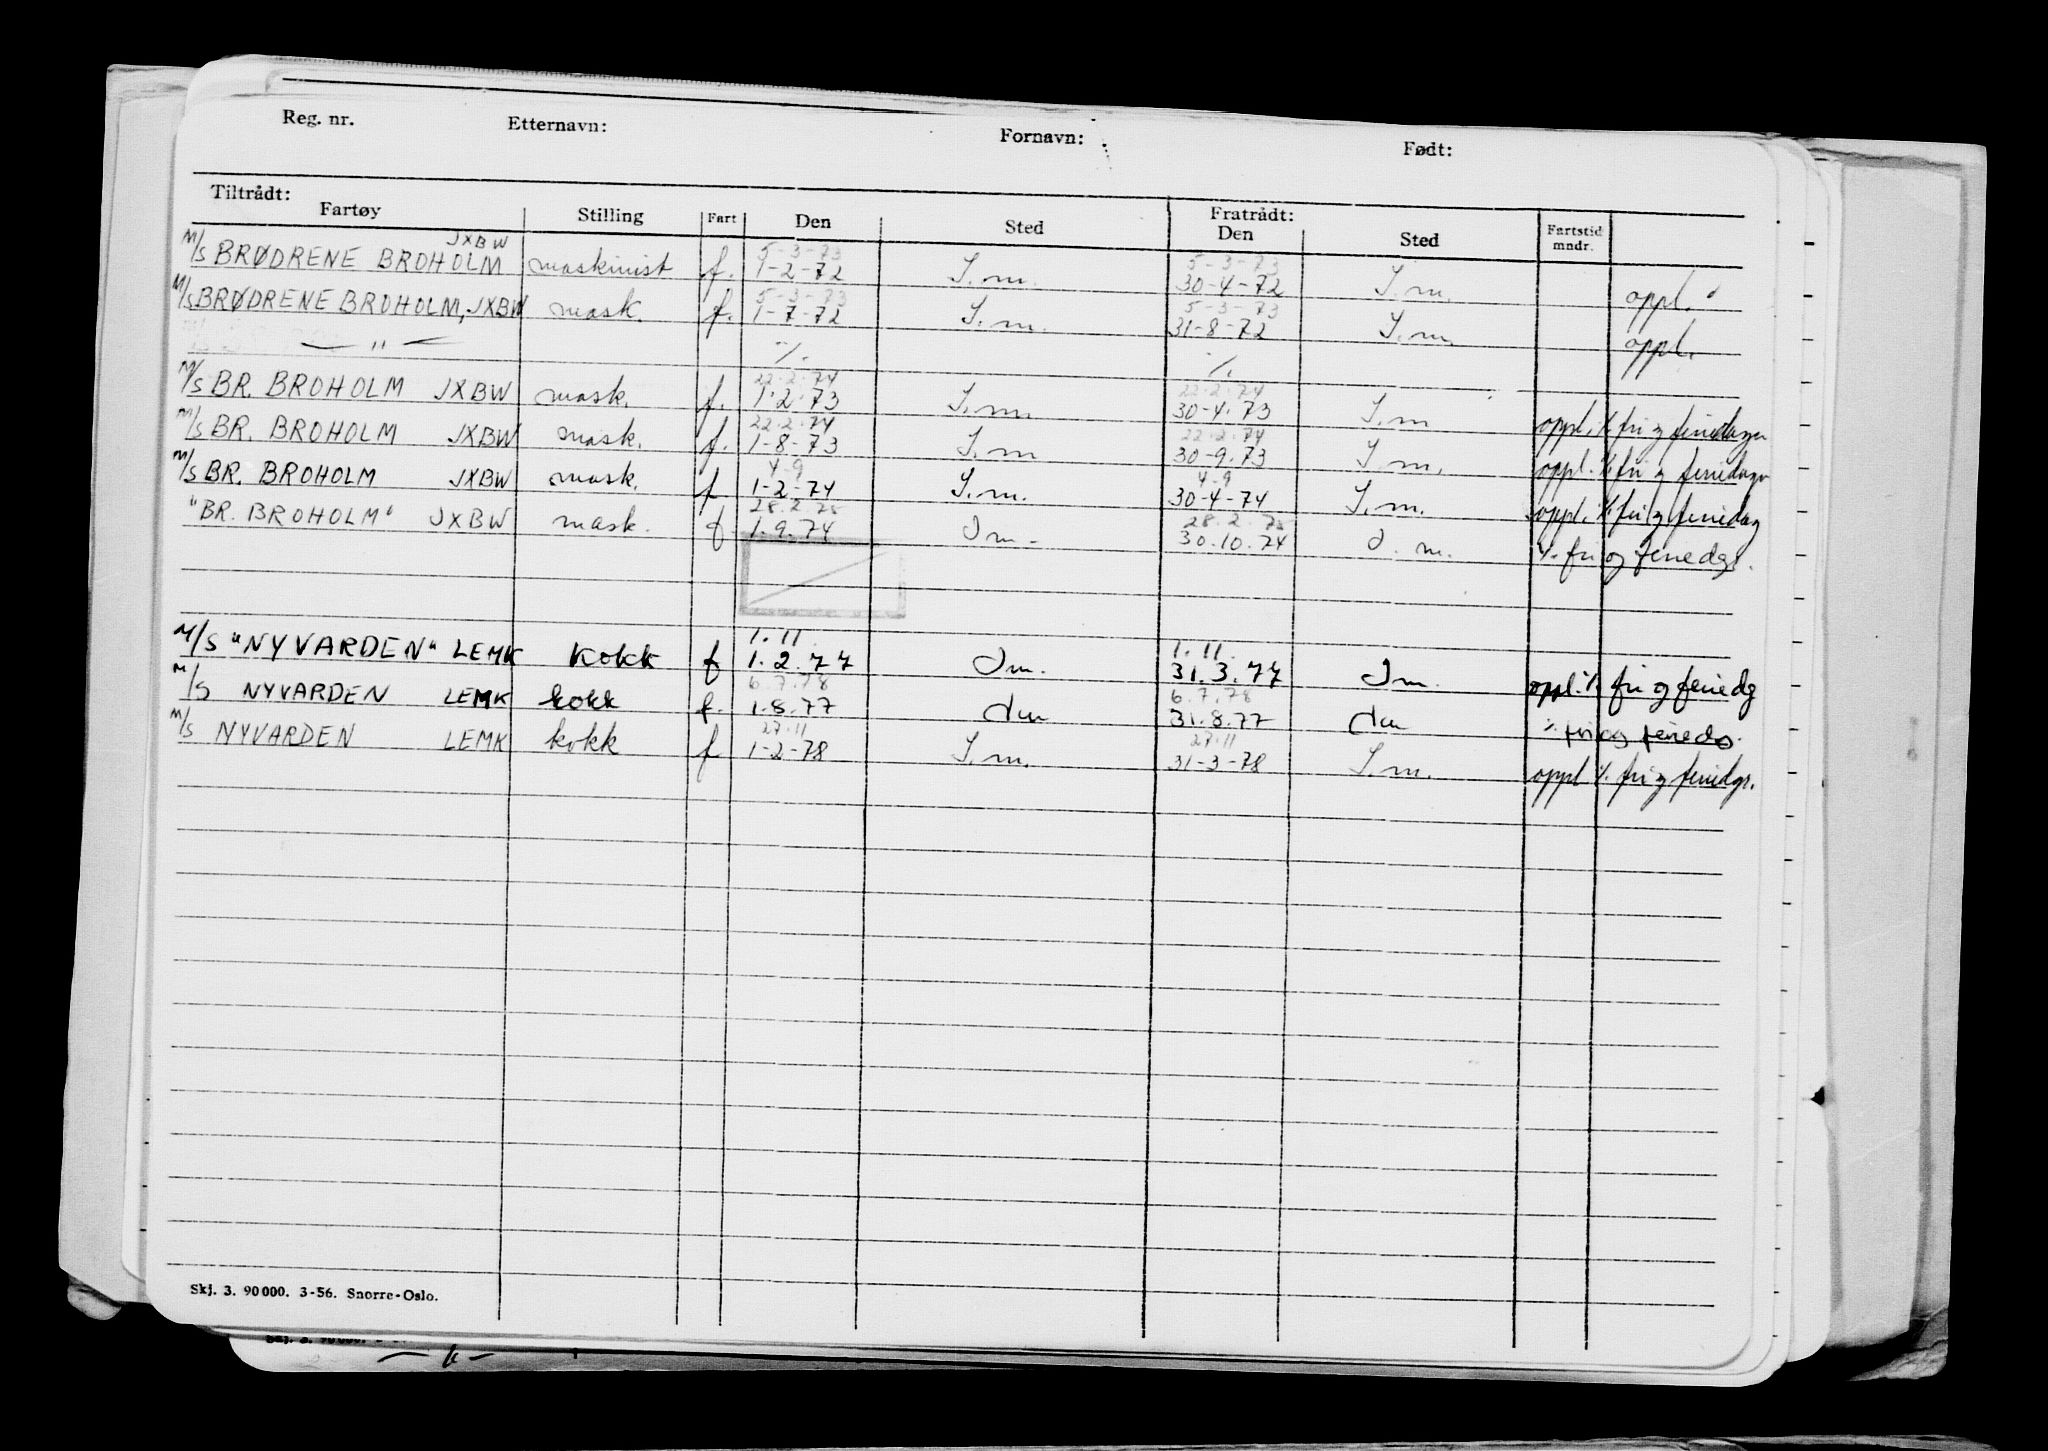 Reg. nr. Etternavn: Fornavn: Født:
Tiltrådt: Fratrådt:
Fartøy Stilling Fart Den Sted Den Sted Fartstid mndr.
JXBW 5-3-73 5-3-73
M/S BRØDRENE BROHOLM maskinist f. 1-2-72 I.m. 30-4-72 I.m. oppl.
5-3-73 5-3-73
M/S BRØDRENE BROHOLM, JXBW mask. f. 1-7-72 I.m. 31-8-72 I.m. oppl.
— " — ./. ./.
22.2.74 22.2.74
M/S BR. BROHOLM JXBW mask. f. 1.2.73 I.m. 30-4.73 I.m oppl. ./. fri og feriedager
22.2.74 22.2.74
M/S BR. BROHOLM JXBW mask. f. 1-8-73 I.m 30-9.73 I m. oppl. ./. fri og feriedager
4-9 4-9
M/S BR. BROHOLM JXBW mask. f 1-2-74 I.m. 30-4-74 I.m. oppl. ./. fri og feriedag
28.2.75 28.2.75
"BR. BROHOLM" JXBW mask. f 1.9.74 I m. 30.10.74 I. m. ./. fri og feriedgr.
1.11. 1.11.
M/S "NYVARDEN" LEMK kokk f 1.2.77 I m. 31.3.77 I m. oppl. ./. fri og feriedg
6.7.78 6.7.78
M/S NYVARDEN LEMK kokk f. 1.8.77 I m 31.8.77 I m ./. fri og feriedg.
27.11 27.11
M/S NYVARDEN LEMK kokk f 1-2-78 I.m. 31-3-78 I.m. oppl ./. fri og feriedgr.
Skj. 3. 90 000. 3-56. Snorre-Oslo.
Skj. 3. 90 000.
— " —